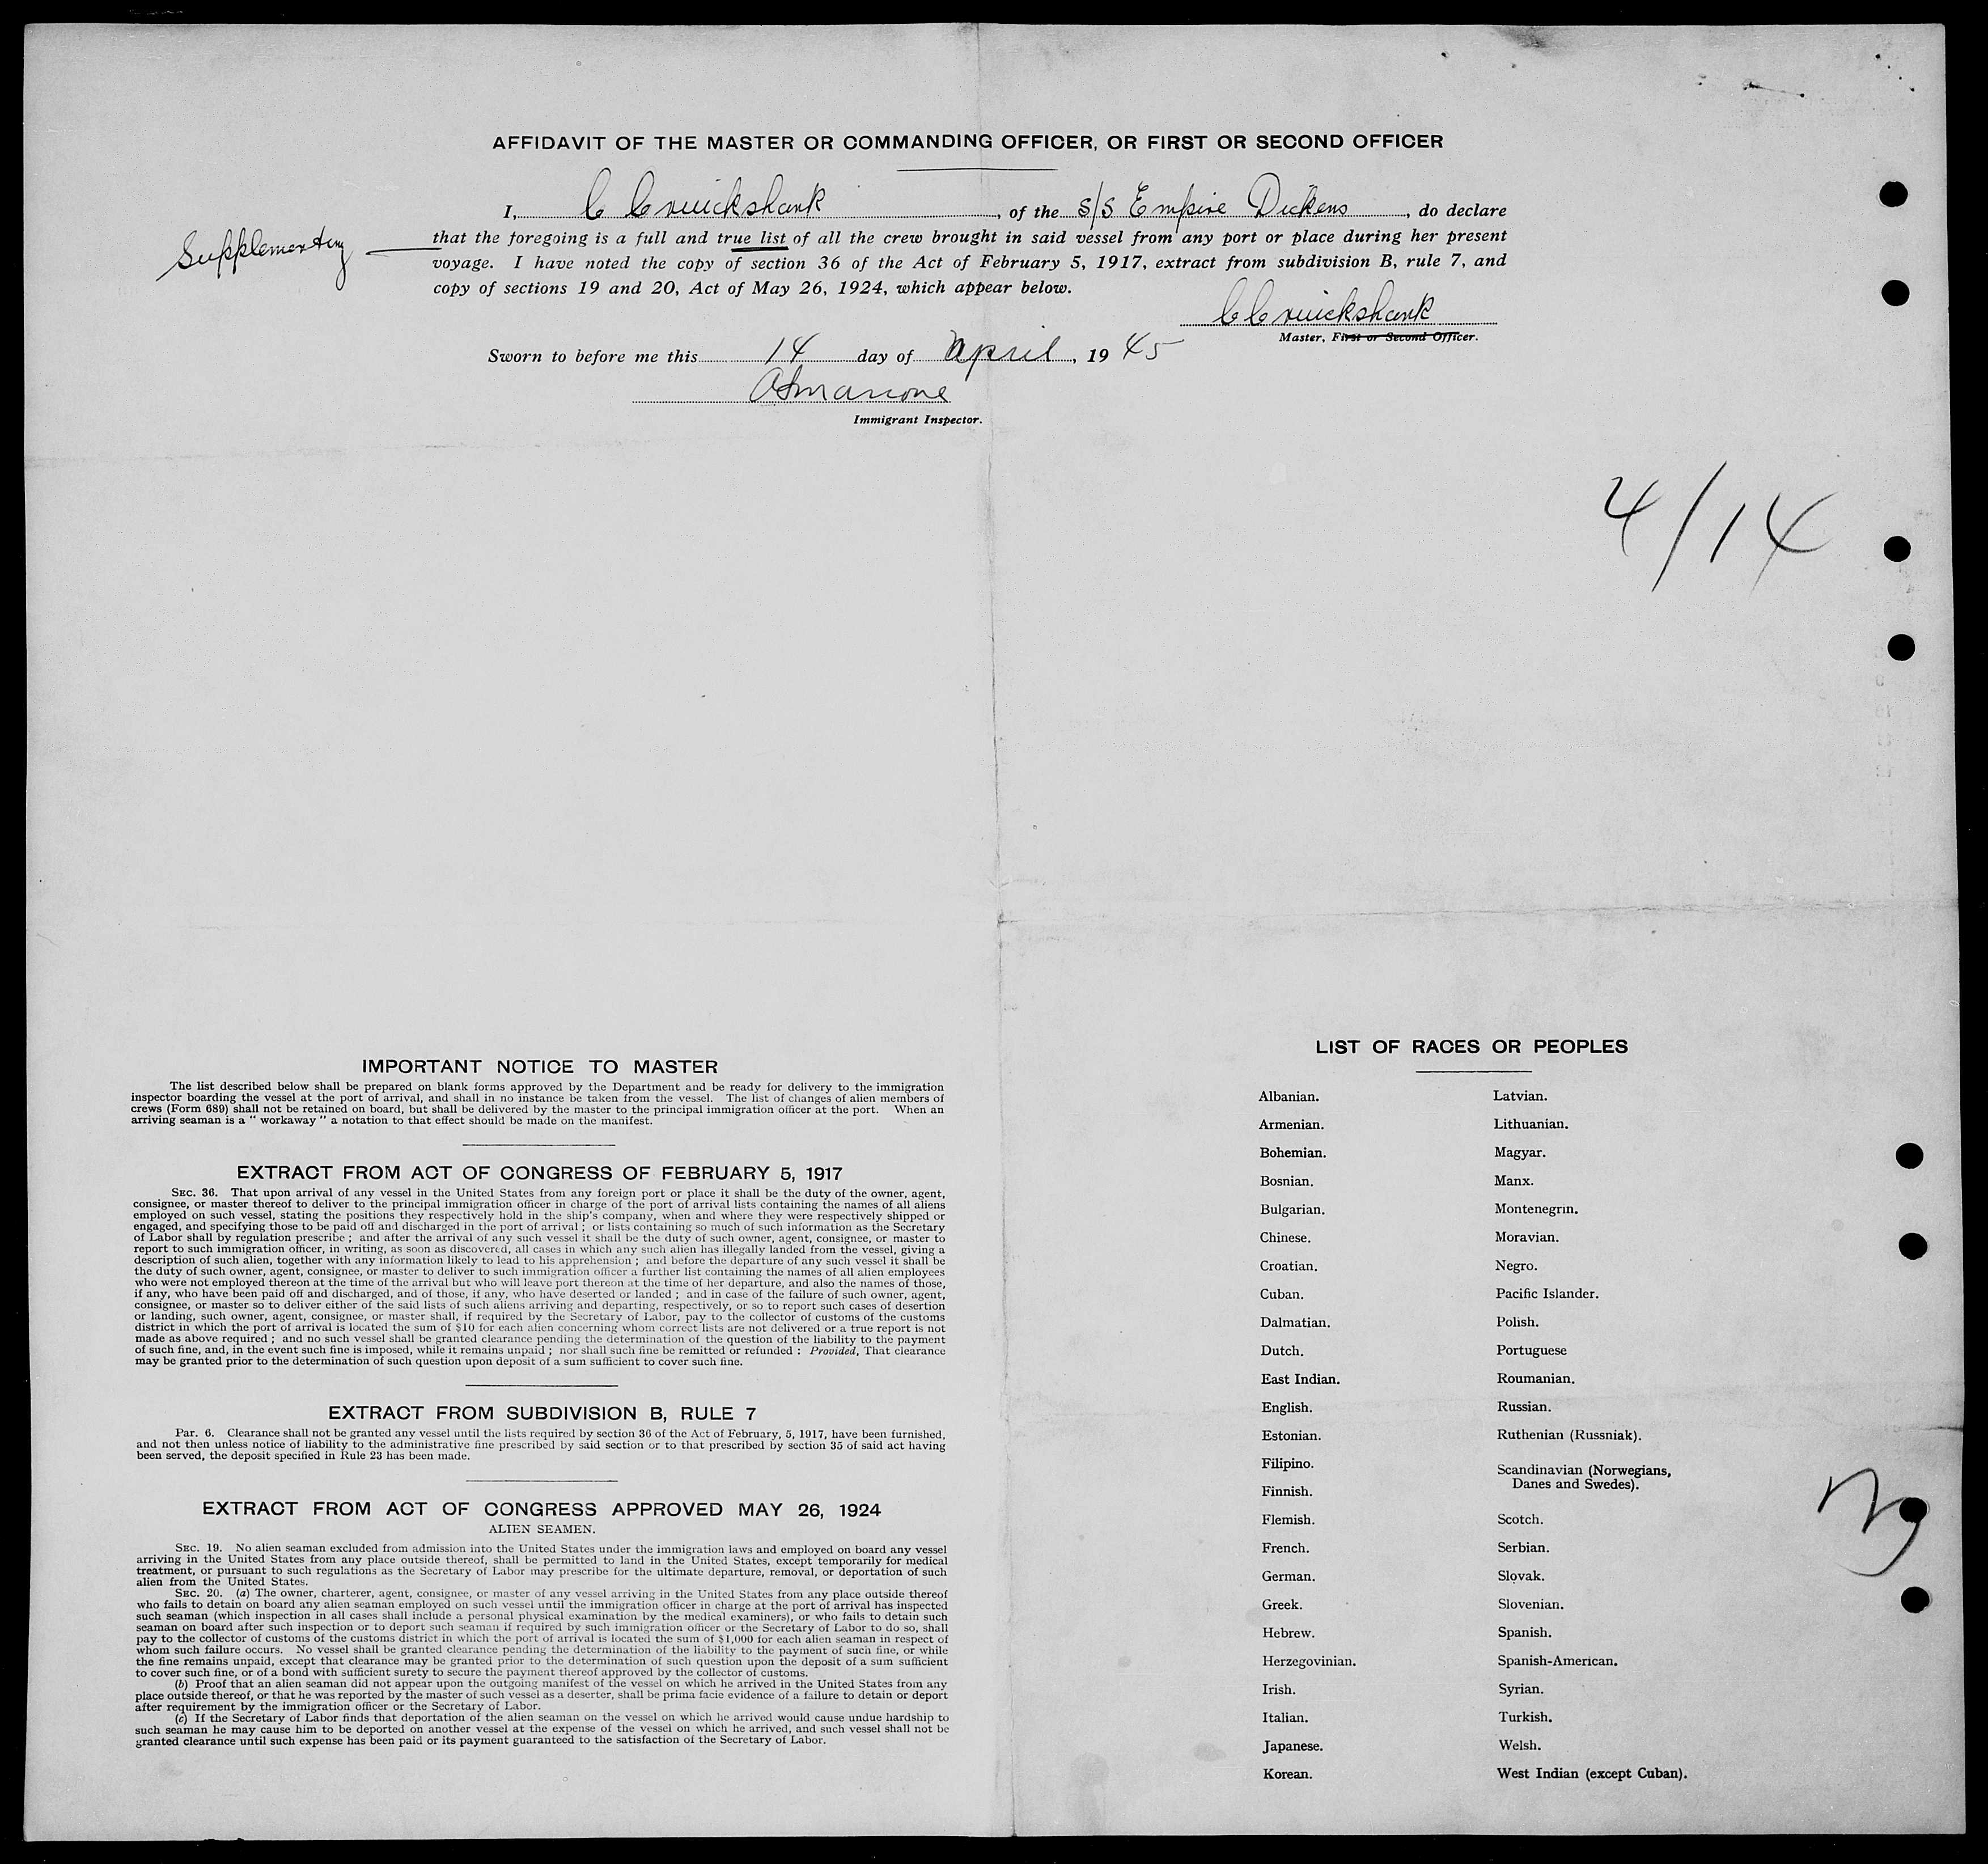 AFFIDAVIT OF THE MASTER OR COMMANDING OFFICER, OR FIRST OR SECOND OFFICER
I, C Cruickshank, of the S/S Empire Dickens, do declare
Supplementary
that the foregoing is a full and true list of all the crew brought in said vessel from any port or place during her present
voyage. I have noted the copy of section 36 of the Act of February 5, 1917, extract from subdivision B, rule 7, and
copy of sections 19 and 20, Act of May 26, 1924, which appear below.
C Cruickshank
Master, First or Second Officer.
Sworn to before me this 14 day of April, 19 45
Immigrant Inspector.
4/14
IMPORTANT NOTICE TO MASTER
The list described below shall be prepared on blank forms approved by the Department and be ready for delivery to the immigration
inspector boarding the vessel at the port of arrival, and shall in no instance be taken from the vessel. The list of changes of alien members of
crews (Form 689) shall not be retained on board, but shall be delivered by the master to the principal immigration officer at the port. When an
arriving seaman is a " workaway " a notation to that effect should be made on the manifest.
EXTRACT FROM ACT OF CONGRESS OF FEBRUARY 5, 1917
SEC. 36. That upon arrival of any vessel in the United States from any foreign port or place it shall be the duty of the owner, agent,
consignee, or master thereof to deliver to the principal immigration officer in charge of the port of arrival lists containing the names of all aliens
employed on such vessel, stating the positions they respectively hold in the ship's company, when and where they were respectively shipped or
engaged, and specifying those to be paid off and discharged in the port of arrival ; or lists containing so much of such information as the Secretary
of Labor shall by regulation prescribe ; and after the arrival of any such vessel it shall be the duty of such owner, agent, consignee, or master to
report to such immigration officer, in writing, as soon as discovered, all cases in which any such alien has illegally landed from the vessel, giving a
description of such alien, together with any information likely to lead to his apprehension ; and before the departure of any such vessel it shall be
the duty of such owner, agent, consignee, or master to deliver to such immigration officer a further list containing the names of all alien employees
who were not employed thereon at the time of the arrival but who will leave port thereon at the time of her departure, and also the names of those,
if any, who have been paid off and discharged, and of those, if any, who have deserted or landed ; and in case of the failure of such owner, agent,
consignee, or master so to deliver either of the said lists of such aliens arriving and departing, respectively, or so to report such cases of desertion
or landing, such owner, agent, consignee, or master shall, if required by the Secretary of Labor, pay to the collector of customs of the customs
district in which the port of arrival is located the sum of $10 for each alien concerning whom correct lists are not delivered or a true report is not
made as above required ; and no such vessel shall be granted clearance pending the determination of the question of the liability to the payment
of such fine, and, in the event such fine is imposed, while it remains unpaid ; nor shall such fine be remitted or refunded : Provided, That clearance
may be granted prior to the determination of such question upon deposit of a sum sufficient to cover such fine.
EXTRACT FROM SUBDIVISION B, RULE 7
Par. 6. Clearance shall not be granted any vessel until the lists required by section 36 of the Act of February, 5, 1917, have been furnished,
and not then unless notice of liability to the administrative fine prescribed by said section or to that prescribed by section 35 of said act having
been served, the deposit specified in Rule 23 has been made.
EXTRACT FROM ACT OF CONGRESS APPROVED MAY 26, 1924
ALIEN SEAMEN.
SEC. 19. No alien seaman excluded from admission into the United States under the immigration laws and employed on board any vessel
arriving in the United States from any place outside thereof, shall be permitted to land in the United States, except temporarily for medical
treatment, or pursuant to such regulations as the Secretary of Labor may prescribe for the ultimate departure, removal, or deportation of such
alien from the United States.
SEC. 20. (a) The owner, charterer, agent, consignee, or master of any vessel arriving in the United States from any place outside thereof
who fails to detain on board any alien seaman employed on such vessel until the immigration officer in charge at the port of arrival has inspected
such seaman (which inspection in all cases shall include a personal physical examination by the medical examiners), or who fails to detain such
seaman on board after such inspection or to deport such seaman if required by such immigration officer or the Secretary of Labor to do so, shall
pay to the collector of customs of the customs district in which the port of arrival is located the sum of $1,000 for each alien seaman in respect of
whom such failure occurs. No vessel shall be granted clearance pending the determination of the liability to the payment of such fine, or while
the fine remains unpaid, except that clearance may be granted prior to the determination of such question upon the deposit of a sum sufficient
to cover such fine, or of a bond with sufficient surety to secure the payment thereof approved by the collector of customs.
(b) Proof that an alien seaman did not appear upon the outgoing manifest of the vessel on which he arrived in the United States from any
place outside thereof, or that he was reported by the master of such vessel as a deserter, shall be prima facie evidence of a failure to detain or deport
after requirement by the immigration officer or the Secretary of Labor.
(c) If the Secretary of Labor finds that deportation of the alien seaman on the vessel on which he arrived would cause undue hardship to
such seaman he may cause him to be deported on another vessel at the expense of the vessel on which he arrived, and such vessel shall not be
granted clearance until such expense has been paid or its payment guaranteed to the satisfaction of the Secretary of Labor.
LIST OF RACES OR PEOPLES
Albanian.
Armenian.
Bohemian.
Bosnian.
Bulgarian.
Chinese.
Croatian.
Cuban.
Dalmatian.
Dutch.
East Indian.
English.
Estonian.
Filipino.
Finnish.
Flemish.
French.
German.
Greek.
Hebrew.
Herzegovinian.
Irish.
Italian.
Japanese.
Korean.
Latvian.
Lithuanian.
Magyar.
Manx.
Montenegrin.
Moravian.
Negro.
Pacific Islander.
Polish.
Portuguese
Roumanian.
Russian.
Ruthenian (Russniak).
Scandinavian (Norwegians,
Danes and Swedes).
Scotch.
Serbian.
Slovak.
Slovenian.
Spanish.
Spanish-American.
Syrian.
Turkish.
Welsh.
West Indian (except Cuban).